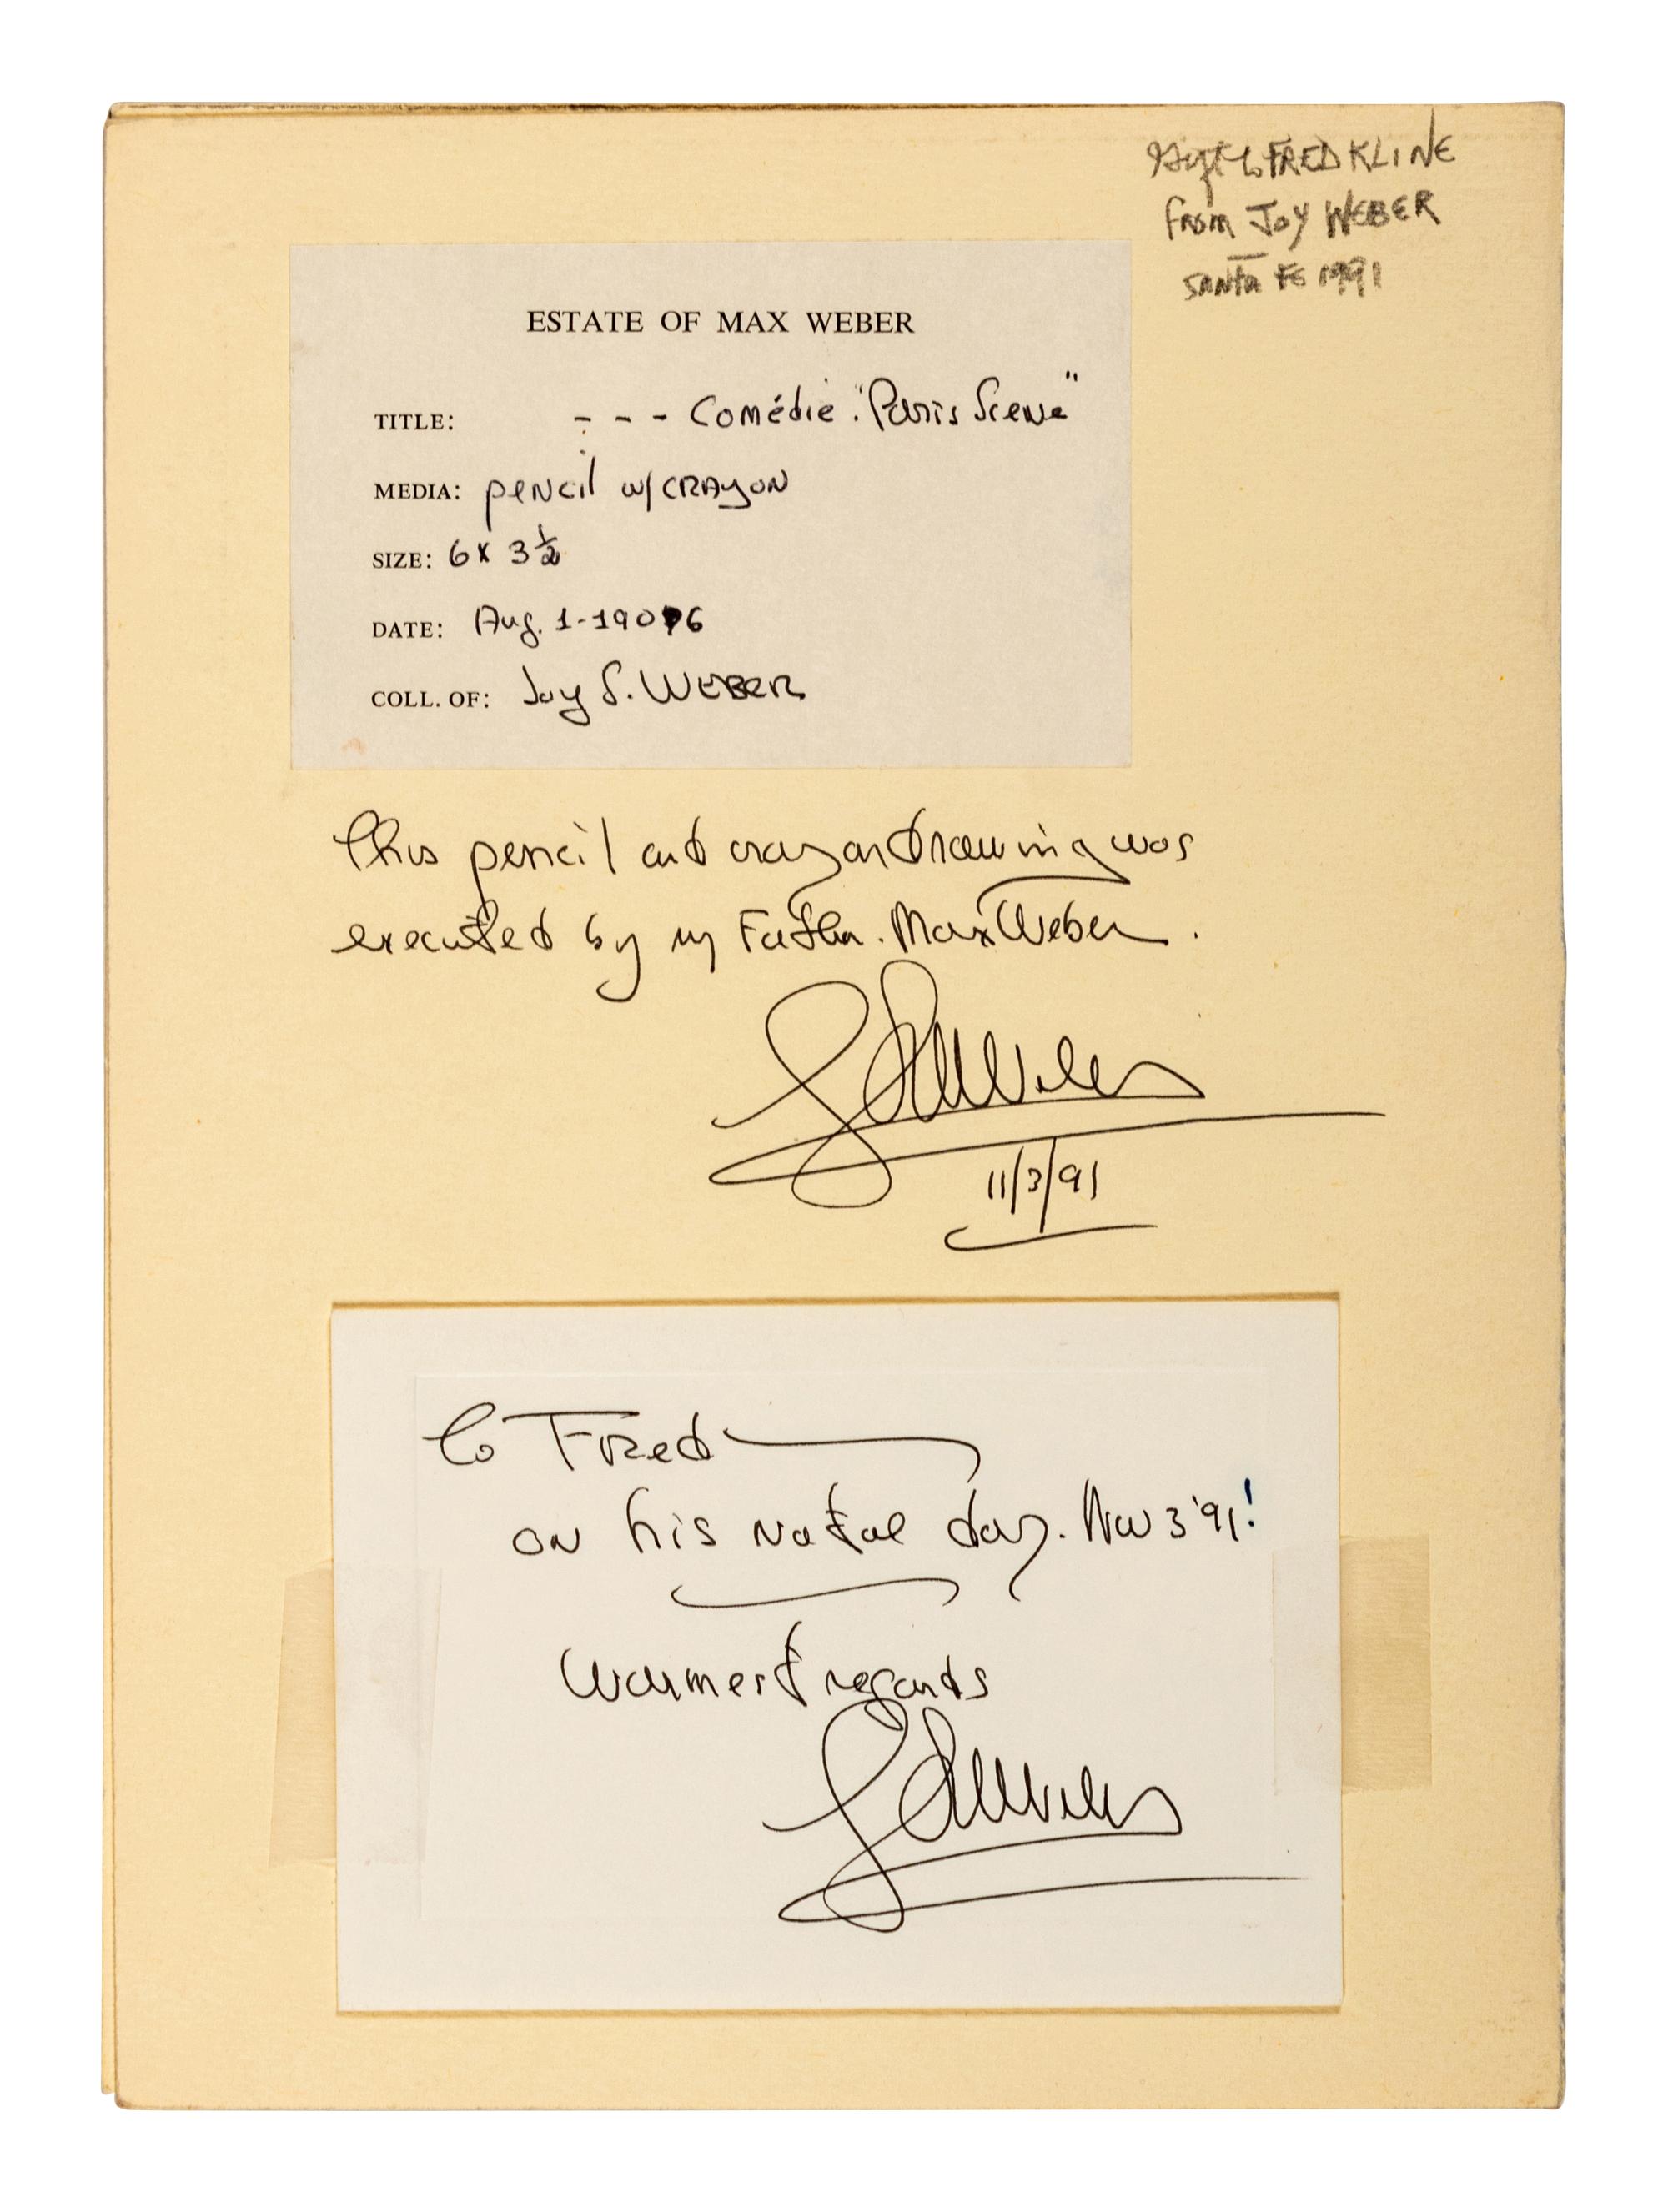 Gift to FRED KLINE
From JOY WEBER
SANTA FE 1991
ESTATE OF MAX WEBER
TITLE: - - - Comédie. "Paris Scene"
MEDIA: pencil w/CRAYON
SIZE: 6 x 3 ½
DATE: Aug. 1-1906
COLL. OF: Joy S. WEBER
This pencil and crayon drawing was
executed by my Father. Max Weber.
11/3/91
To Fred
on his natal day. Nov 3 '91!
Warmest regards